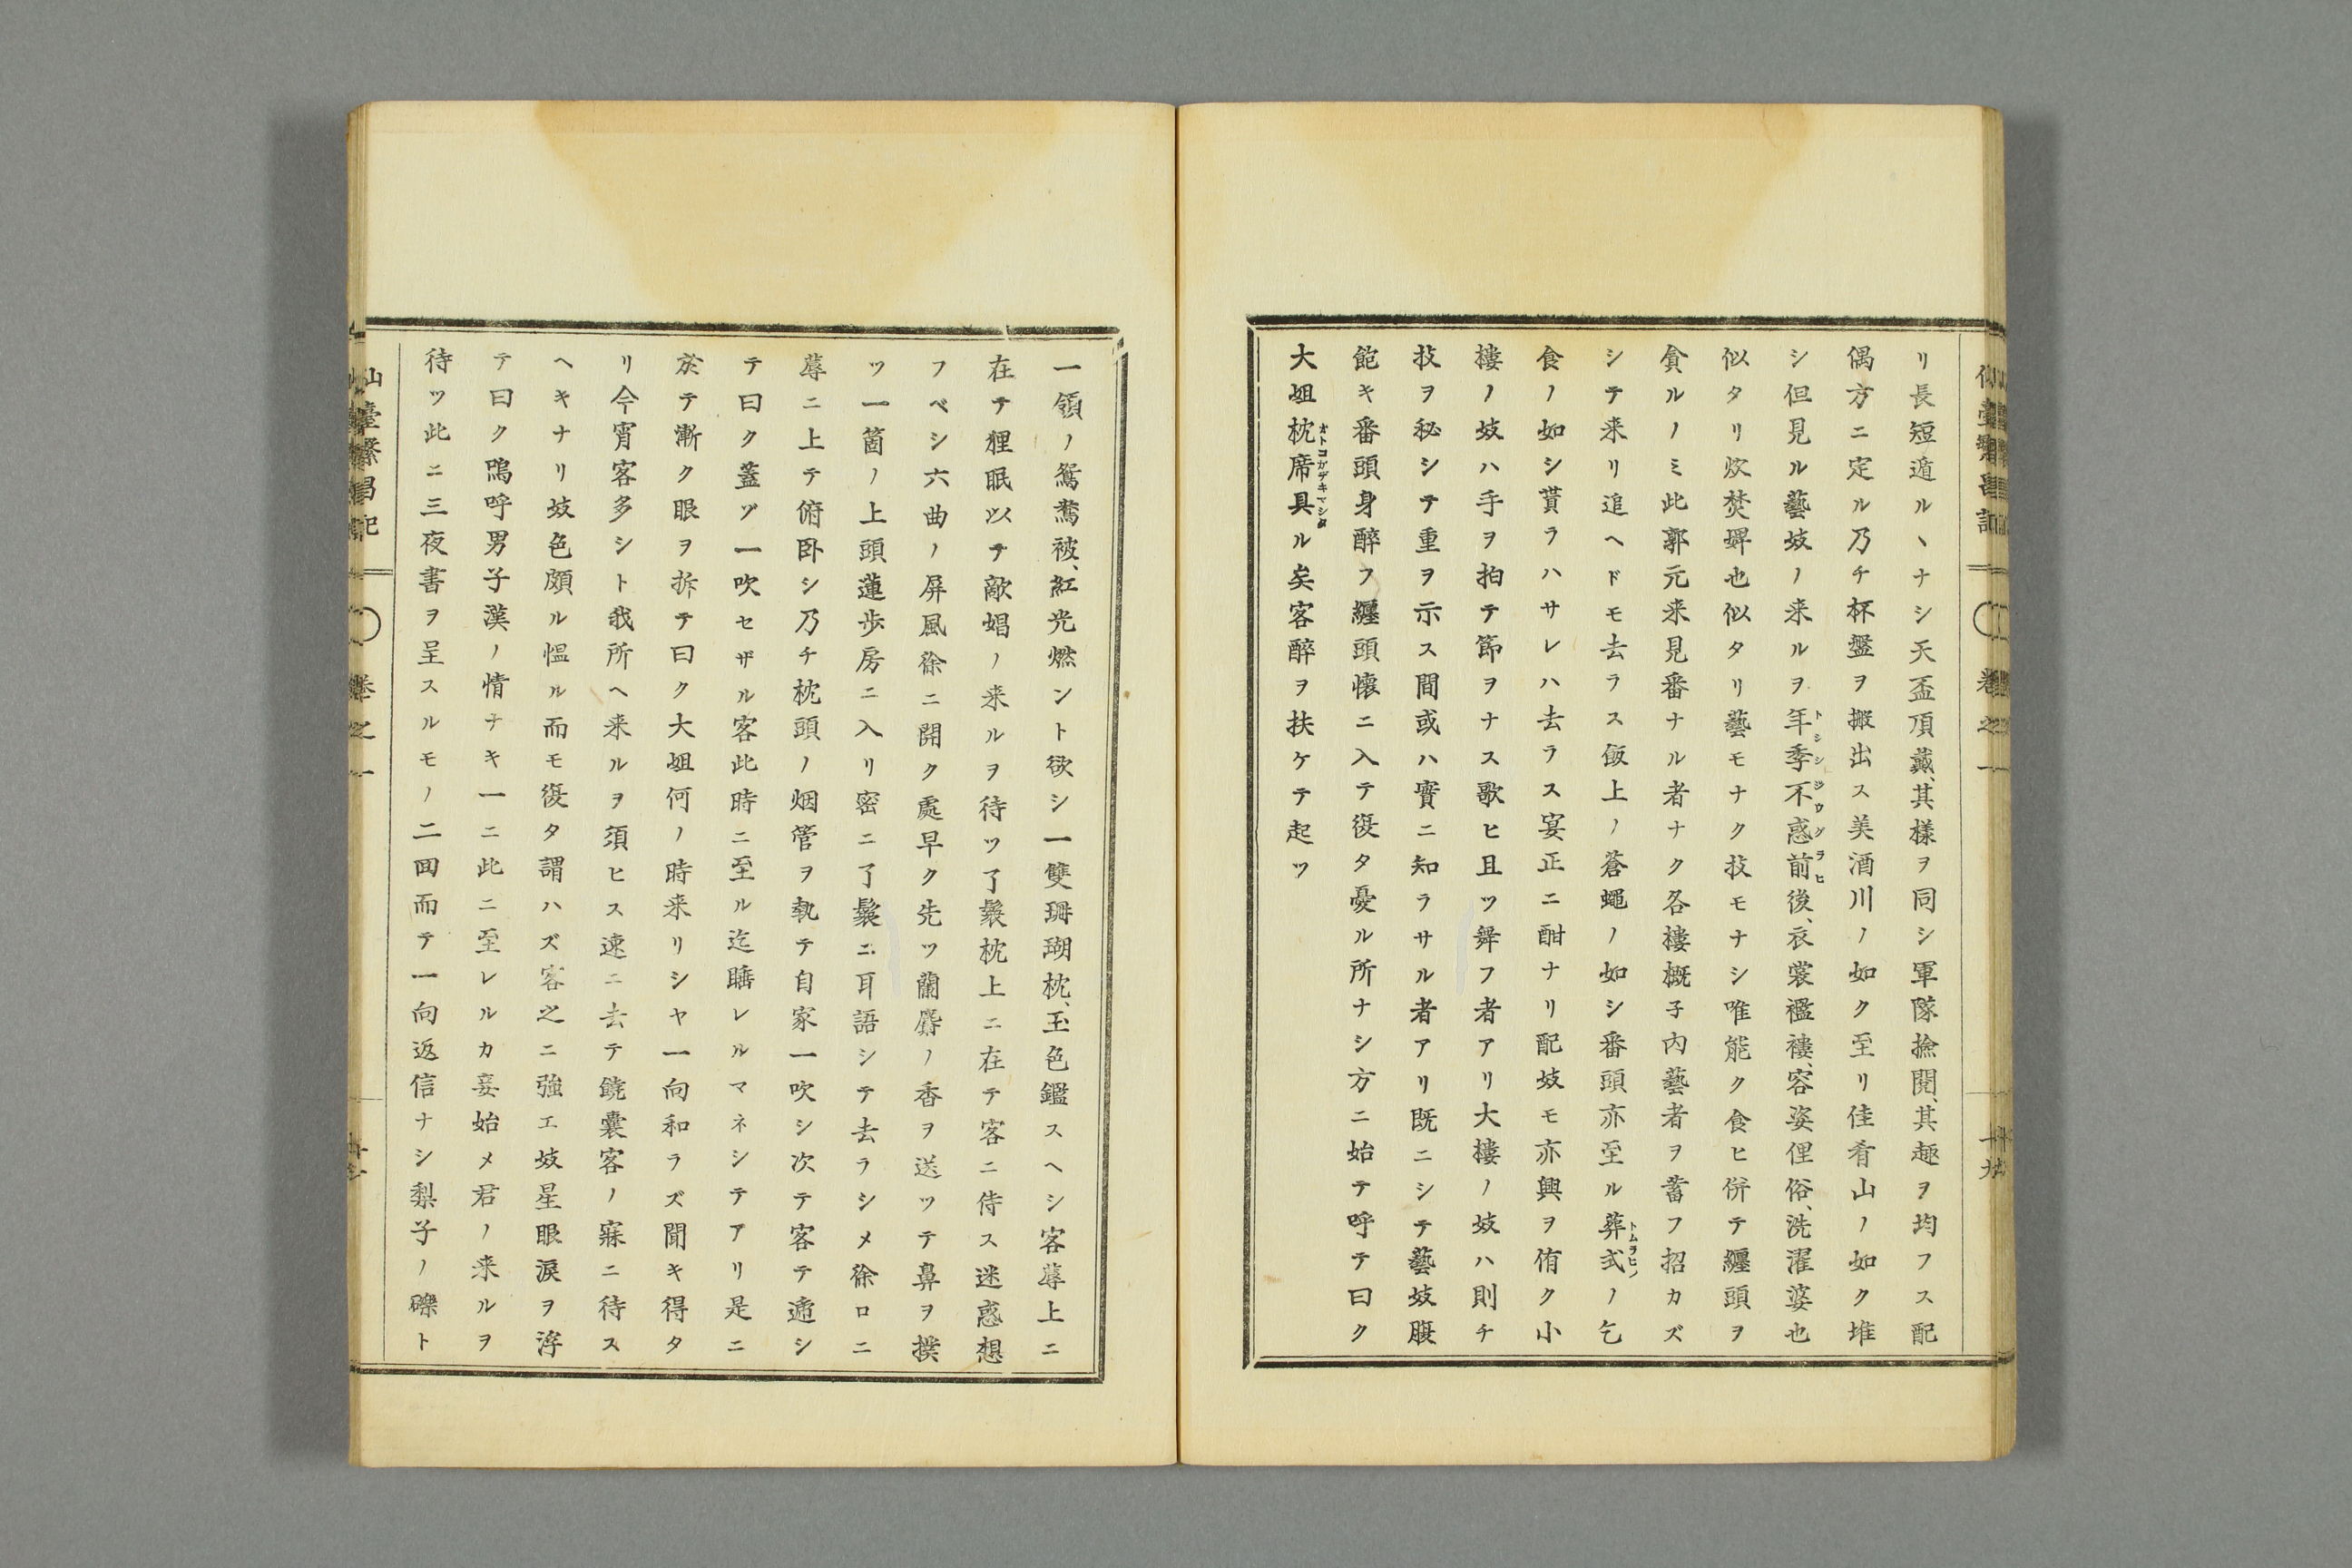 リ長短遁ルヽナシ天盃頂戴、其樣ヲ同シ軍隊撿閲、其趣ヲ均フス配
偶方ニ定ル乃チ杯盤ヲ搬出ス美酒川ノ如ク至リ佳肴山ノ如ク堆
シ但見ル藝妓ノ来ルヲ年季不惑前後、衣裳襤褸、容姿俚俗、洗濯婆也
トシシジウグラヒ
似タリ炊焚婢也似タリ藝モナク技モナシ唯能ク食ヒ併テ纒頭ヲ
貪ルノミ此郭元来見番ナル者ナク各樓概子内藝者ヲ蓄フ招カズ
シテ来リ追ヘドモ去ラス飯上ノ蒼蠅ノ如シ番頭亦至ル葬式ノ乞
トムラヒノ
食ノ如シ貰ラハサレハ去ラス宴正ニ酣ナリ配妓モ亦興ヲ侑ク小
樓ノ妓ハ手ヲ拍テ節ヲナス歌ヒ且ツ舞フ者アリ大樓ノ妓ハ則チ
技ヲ秘シテ重ヲ示ス間或ハ實ニ知ラサル者アリ既ニシテ藝妓腹
飽キ番頭身醉フ纒頭懐ニ入テ復タ憂ル所ナシ方ニ始テ呼テ曰ク
大姐枕席具ル矣客醉ヲ扶ケテ起ツ
オトコガデキマシタ
仙臺繁昌記 巻之一 十九
一領ノ鴛鴦被、紅光燃ント欲シ一雙珊瑚枕、玉色鑑スヘシ客蓐上ニ
在テ狸眠以テ敵娼ノ来ルヲ待ツ了鬟枕上ニ在テ客ニ侍ス迷惑想
フベシ六曲ノ屏風徐ニ開ク處早ク先ツ蘭麝ノ香ヲ送ツテ鼻ヲ撲
ツ一箇ノ上頭蓮歩房ニ入リ密ニ了鬟ニ耳語シテ去ラシメ徐ロニ
蓐ニ上テ俯卧シ乃チ枕頭ノ烟管ヲ執テ自家一吹シ次テ客テ逓シ
テ曰ク蓋ゾ一吹セザル客此時ニ至ル迄睡レルマネシテアリ是ニ
於テ漸ク眼ヲ拆テ曰ク大姐何ノ時来リシヤ一向和ラズ聞キ得タ
リ今宵客多シト我所ヘ来ルヲ須ヒス速ニ去テ饒嚢客ノ寐ニ待ス
ヘキナリ妓色頗ル慍ル而モ復タ謂ハズ客之ニ強エ妓星眼涙ヲ浮
テ曰ク嗚呼男子漢ノ情ナキ一ニ此ニ至レルカ妾始メ君ノ来ルヲ
待ツ此ニ三夜書ヲ呈スルモノ二回而テ一向返信ナシ梨子ノ礫ト
臺繁昌記 巻之一